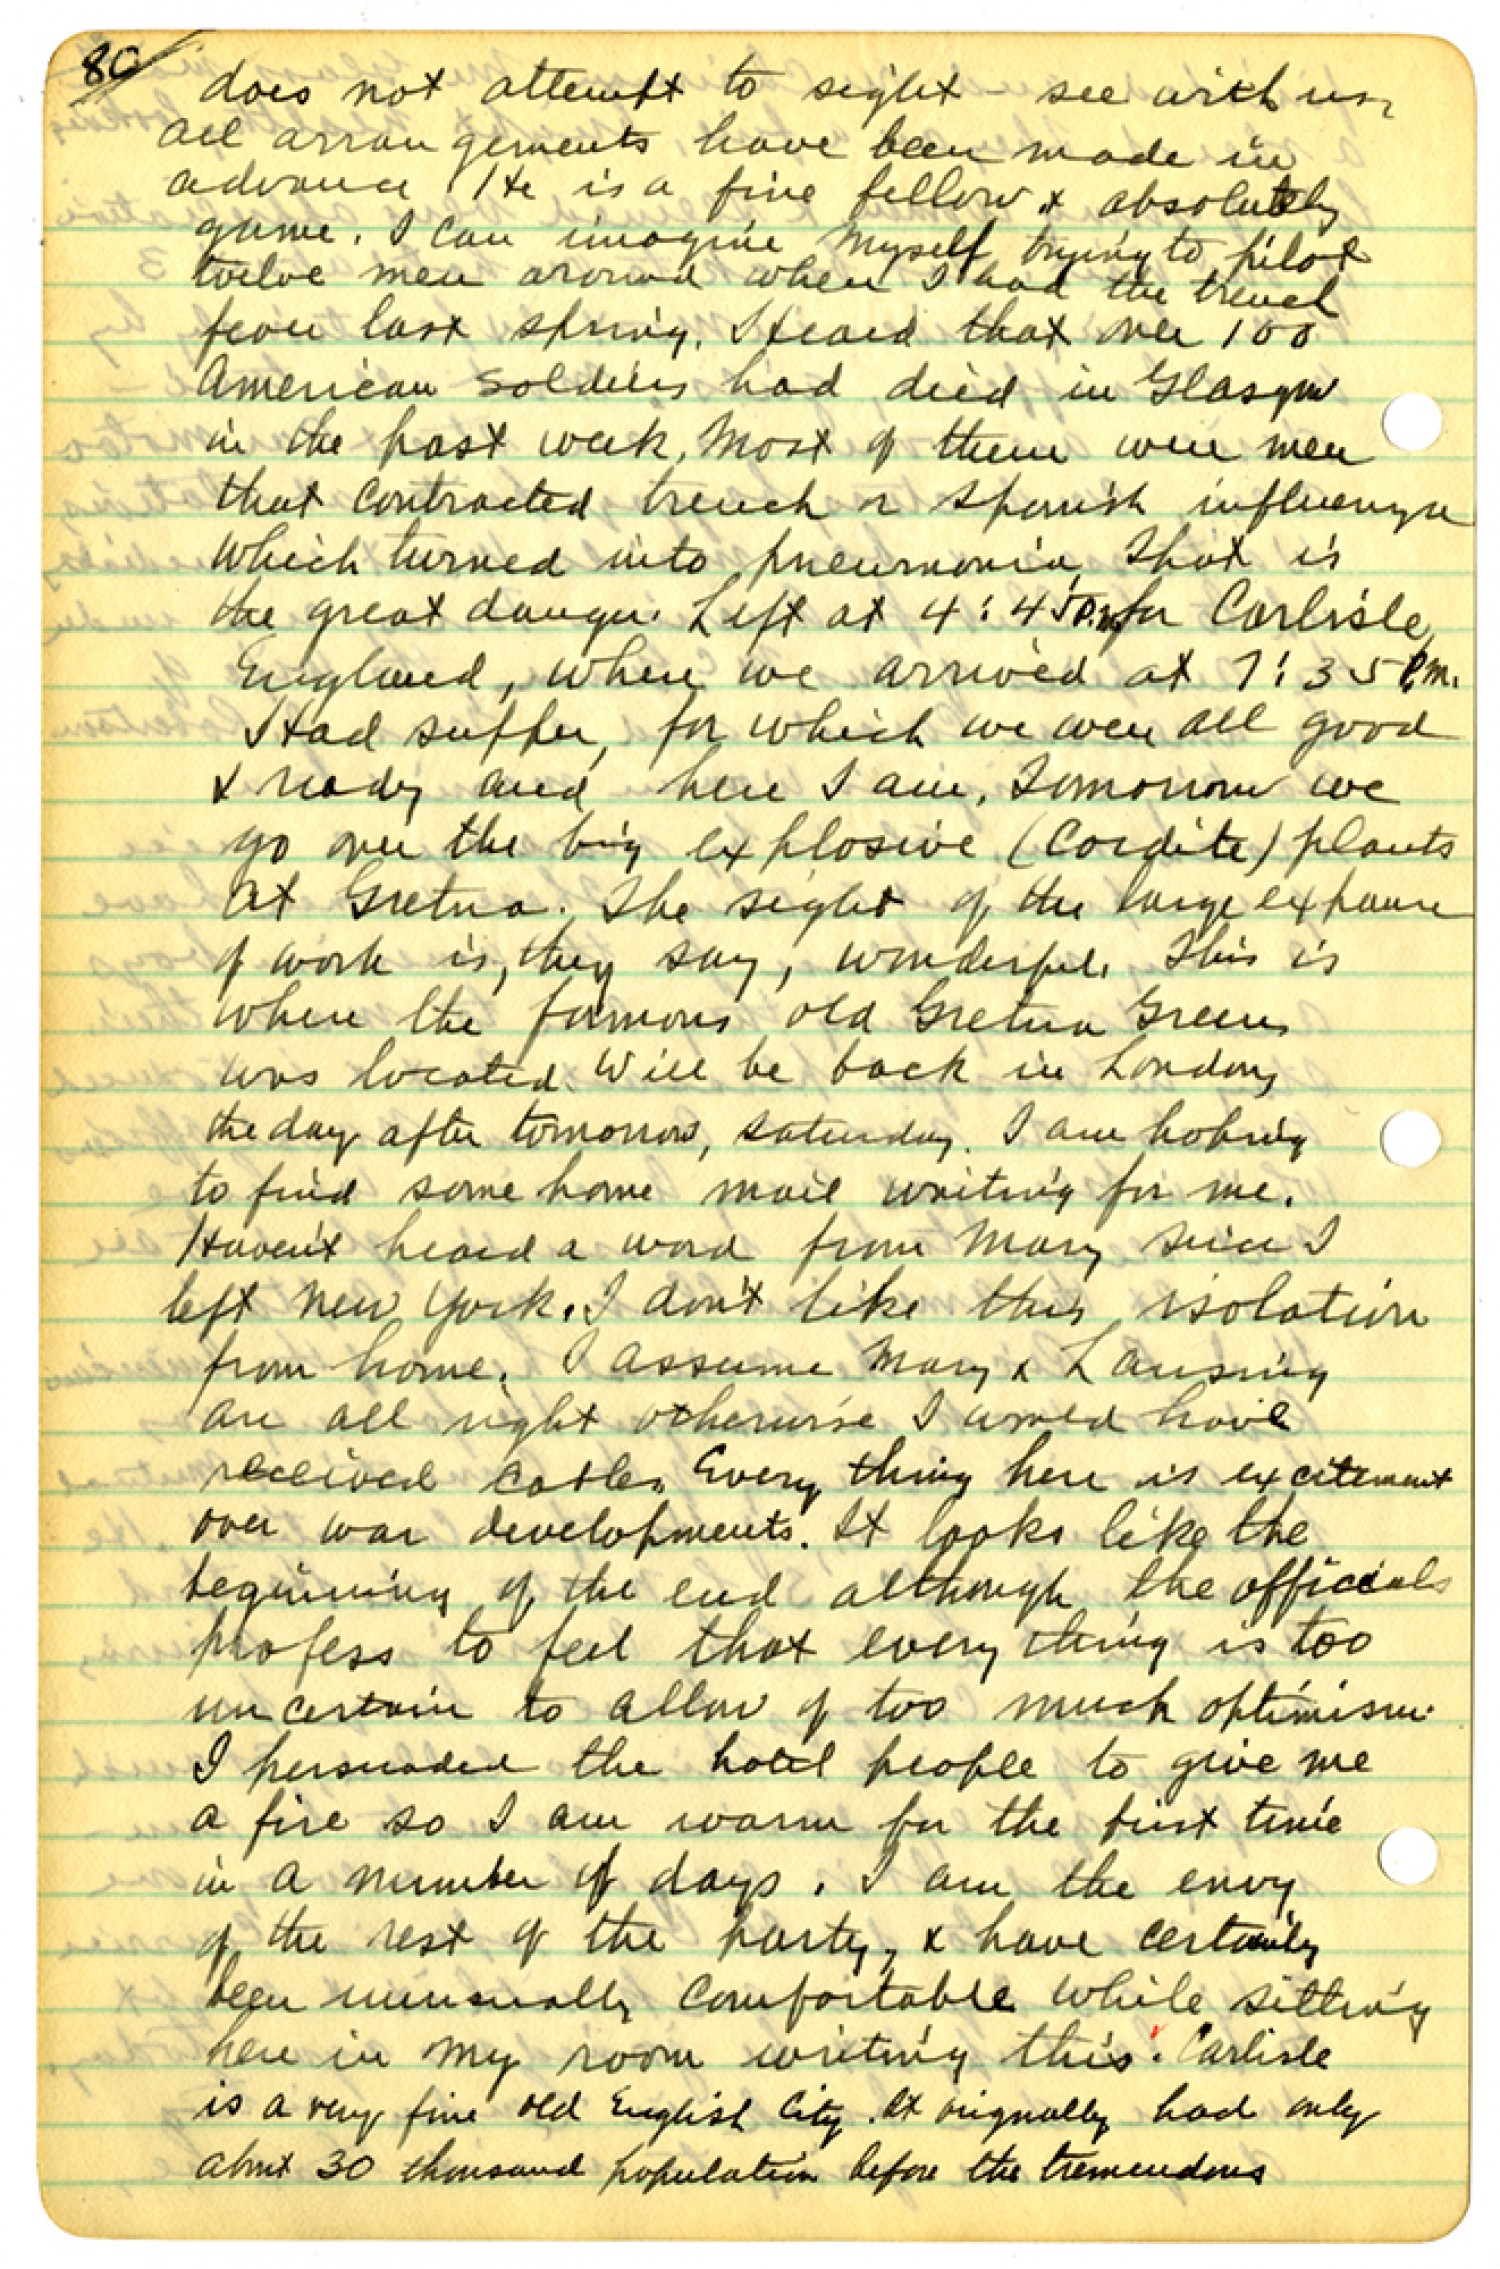 80
does not attempt to sight-see with us,
all arrangements have been made in
advance. He is a fine fellow & absolutely
game. I can imagine myself trying to pilot
twelve men around when I had the trench
fever last spring. Heard that over 100
American soldiers had died in Glasgow
in the past week, Most of them were men
that contracted trench or Spanish influenza
which turned into pneumonia, that is
the great danger. Left at 4:45 P.M. for Carlisle,
England, where we arrived at 7:35 P.M.
Had supper, for which we were all good
& ready and here I am. Tomorrow we
go over the big explosive (Cordite) plants
at Gretna. The sight of the large expanse
of work is, they say, wonderful. This is
where the famous old Gretna Green
was located. Will be back in London,
the day after tomorrow, Saturday. I am hoping
to find some home mail waiting for me.
Haven't heard a word from Mary since I
left New York. I don't like this isolation
from home. I assume Mary & Lansing
are all right otherwise I would have
received cables. Every thing here is excitement
over war developments. It looks like the
beginning of the end although the officials
profess to feel that every thing is too
uncertain to allow of too much optimism.
I persuaded the hotel people to give me
a fire so I am warm for the first time
in a number of days. I am the envy
of the rest of the party, & have certainly
been unusually comfortable while sitting
here in my room writing this. Carlisle
is a very fine old English City. It orignally had only
about 30 thousand population before the tremendous